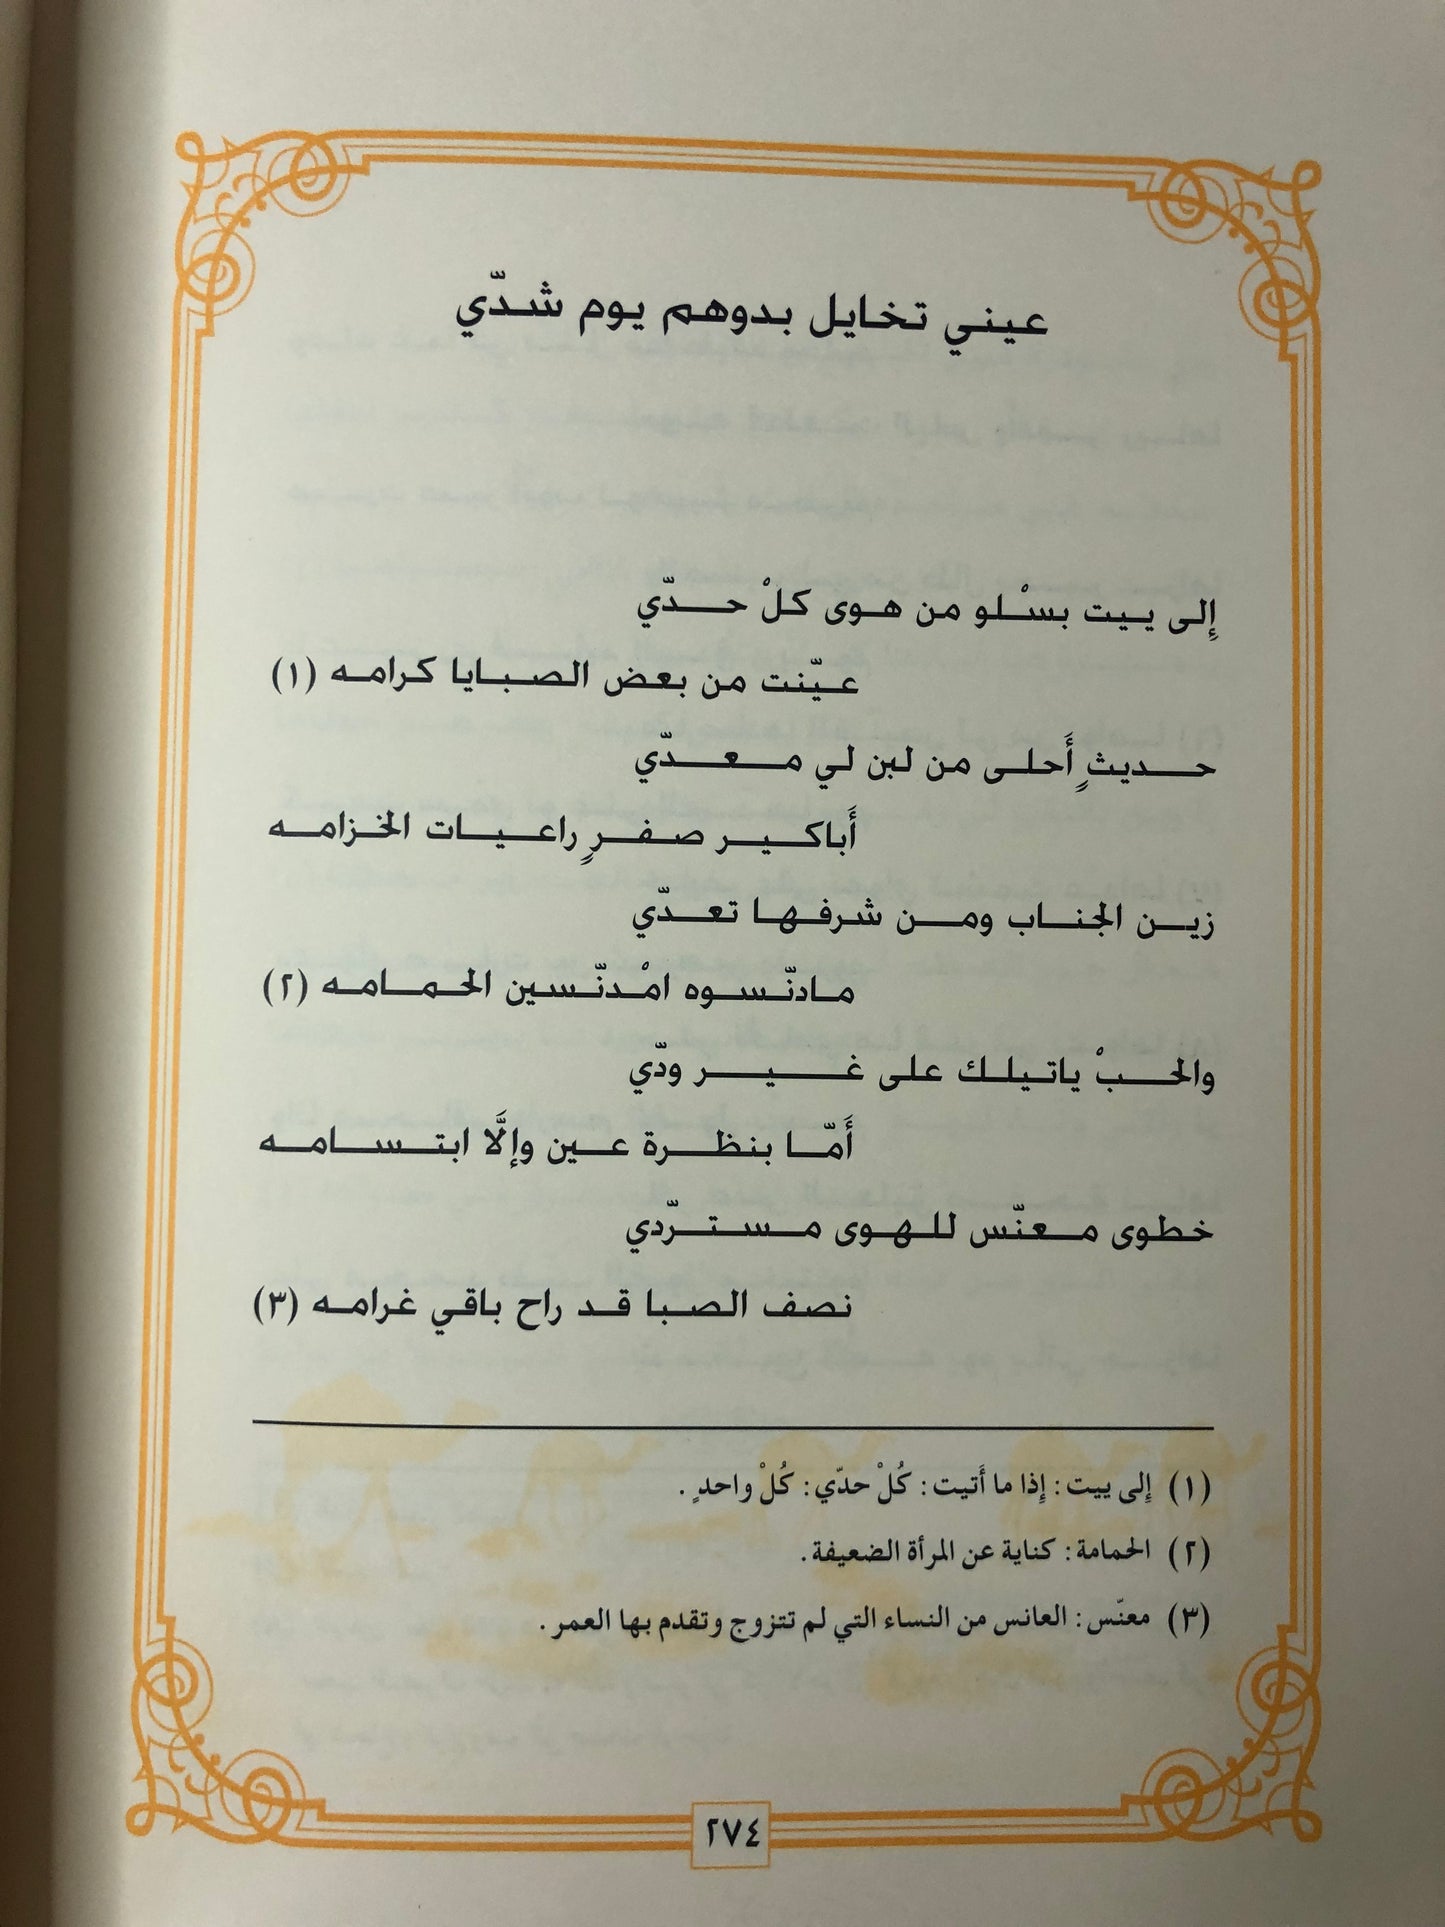 عيني تخايل بدوهم يوم شدّي
إلى ييت بسْلو من هوى كلْ حدّي
عيّنت من بعض الصبايا كرامه (١)
حديثٍ أَحلى من لبن لي معدّي
أَباكير صفرٍ راعيات الخزامه
زين الجناب ومن شرفها تعدّي
مادنّسوه امْدنّسين الحمامه (٢)
والحبْ ياتيلك على غير ودّي
أَمّا بنظرة عين وإلَّا ابتسامه
خطوى معنّس للهوى مستردّي
نصف الصبا قد راح باقي غرامه (٣)
(١) إلى ييت : إذا ما أَتيت : كُلْ حدّي : كُلْ واحدٍ .
(٢) الحمامة : كناية عن المرأة الضعيفة .
(٣) معنّس : العانس من النساء التي لم تتزوج وتقدم بها العمر .
٢٧٤